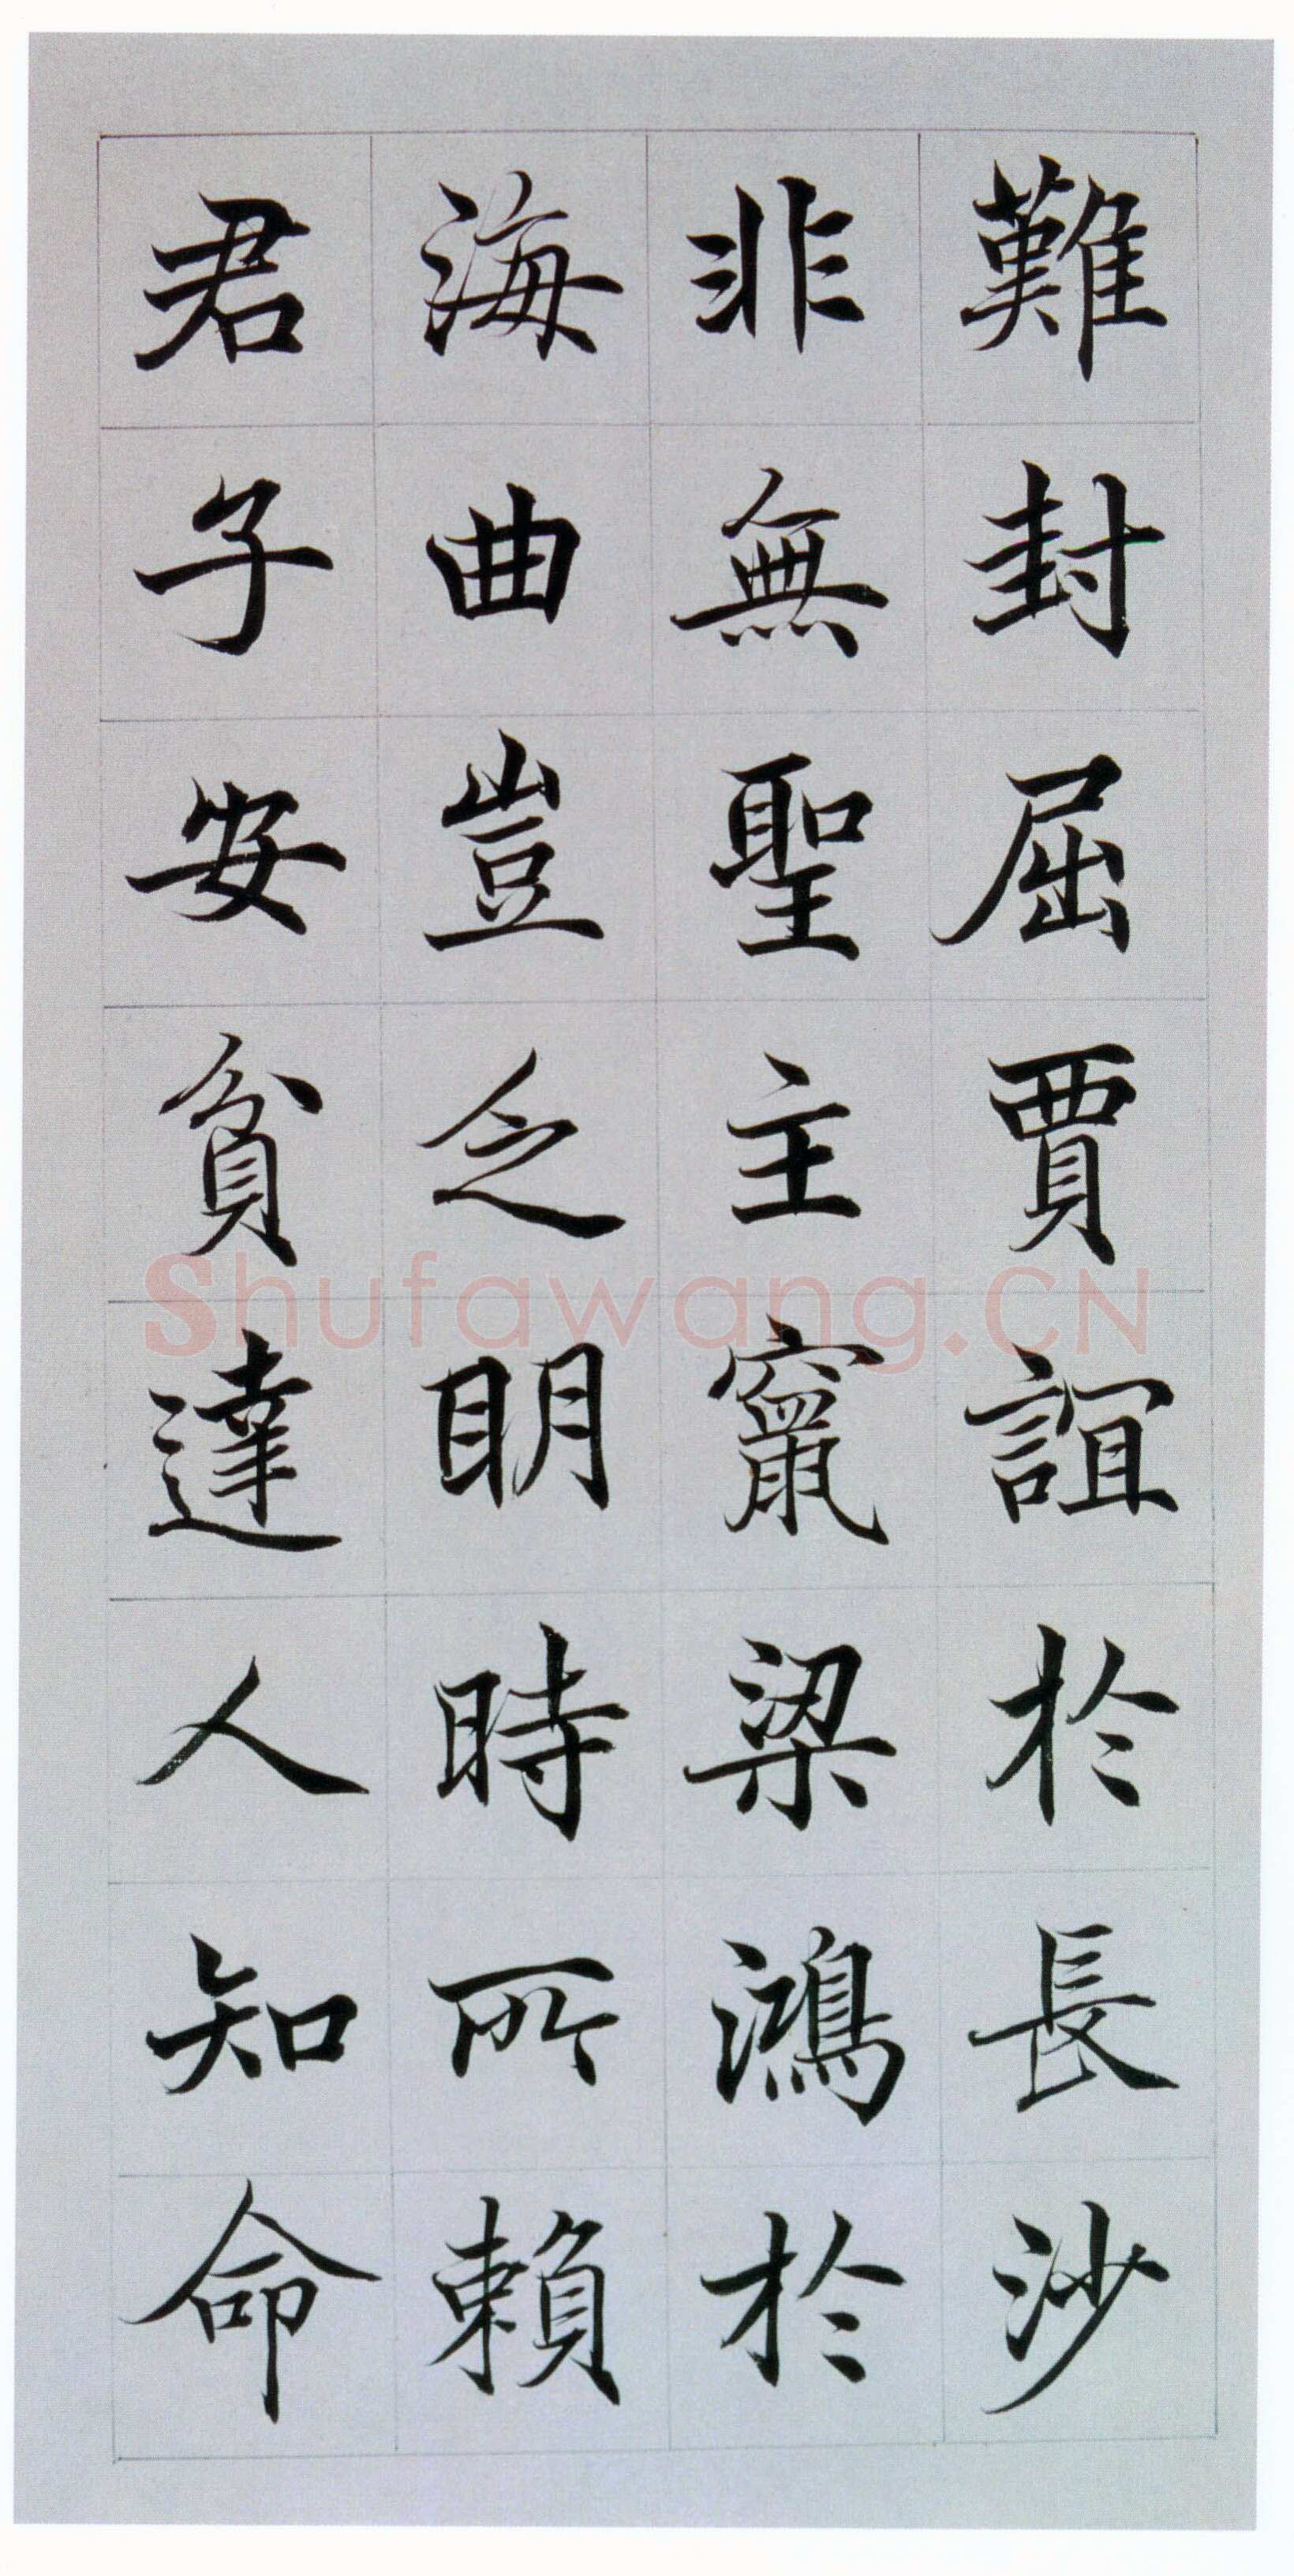 難封屈賈誼於長沙
非無聖主竄梁鴻於
海曲豈乏明時所賴
君子安貧達人知命
Shufawang.CN